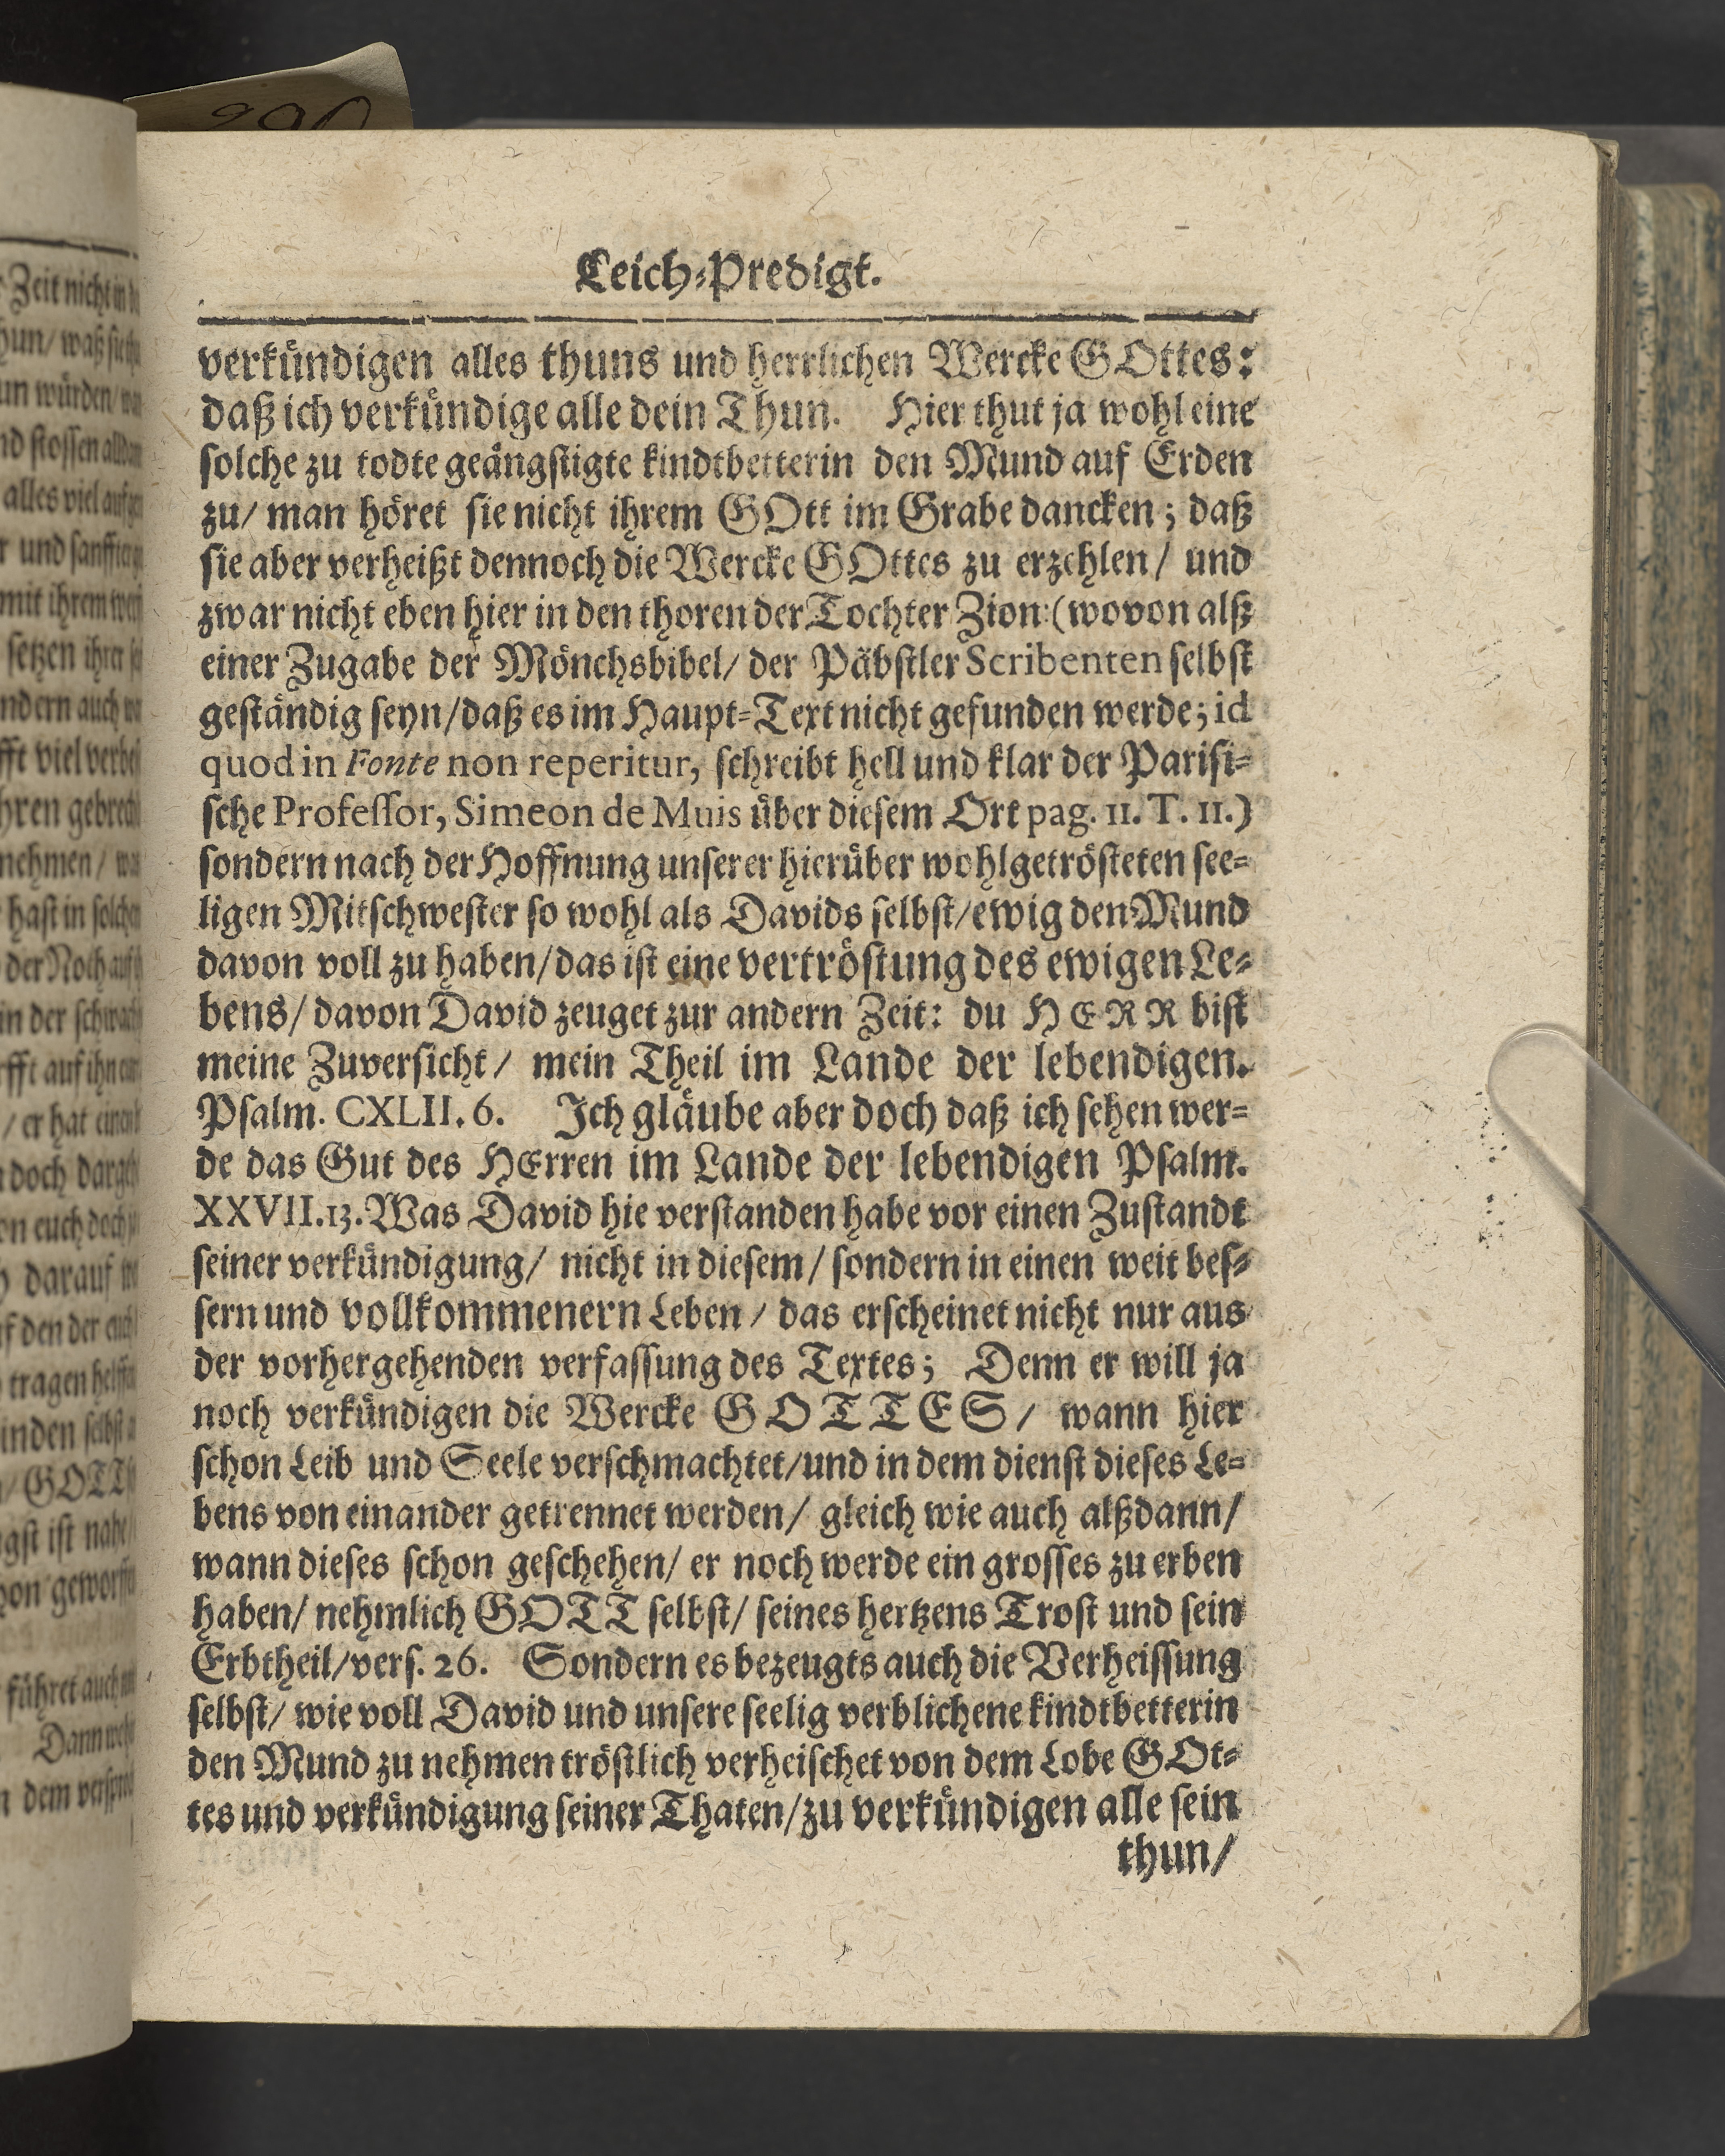 Leich-Predigt.
verkündigen alles thuns und herrlichen Wercke GOttes:
daß ich verkündige alle dein Thun. Hier thut ja wohl eine
solche zu todte geängstigte kindtbetterin den Mund auf Erden
zu/ man höret sie nicht ihrem GOtt im Grabe dancken; daß
sie aber verheißt dennoch die Wercke GOttes zu erzehlen/ und
zwar nicht eben hier in den thoren der Tochter Zion: (wovon alß
einer Zugabe der Mönchsbibel/ der Päbstler Scribenten selbst
geständig seyn/daß es im Haupt-Text nicht gefunden werde; id
quod in Fonte non reperitur, schreibt hell und klar der Parisi-
sche Professor, Simeon de Muis über diesem Ort pag. 11. T. 11.)
sondern nach der Hoffnung unserer hierüber wohlgetrösteten see-
ligen Mitschwester so wohl als Davids selbst/ewig den Mund
davon voll zu haben/das ist eine vertröstung des ewigen Le-
bens/ davon David zeuget zur andern Zeit: du HERR bist
meine Zuversicht/ mein Theil im Lande der lebendigen.
Psalm. CXLII. 6. Ich gläube aber doch daß ich sehen wer-
de das Gut des HErren im Lande der lebendigen Psalm.
XXVII.13. Was David hie verstanden habe vor einen Zustandt
seiner verkündigung/ nicht in diesem/ sondern in einen weit bes-
sern und vollkommenern Leben/ das erscheinet nicht nur aus
der vorhergehenden verfassung des Textes; Denn er will ja
noch verkündigen die Wercke GOTTES/ wann hier
schon Leib und Seele verschmachtet/und in dem dienst dieses Le-
bens von einander getrennet werden/ gleich wie auch alßdann/
wann dieses schon geschehen/ er noch werde ein grosses zu erben
haben/ nehmlich GOTT selbst/ seines hertzens Trost und sein
Erbtheil/vers. 26. Sondern es bezeugts auch die Verheissung
selbst/ wie voll David und unsere seelig verblichene kindtbetterin
den Mund zu nehmen tröstlich verheischet von dem Lobe GOt-
tes und verkündigung seiner Thaten/zu verkündigen alle sein
thun/